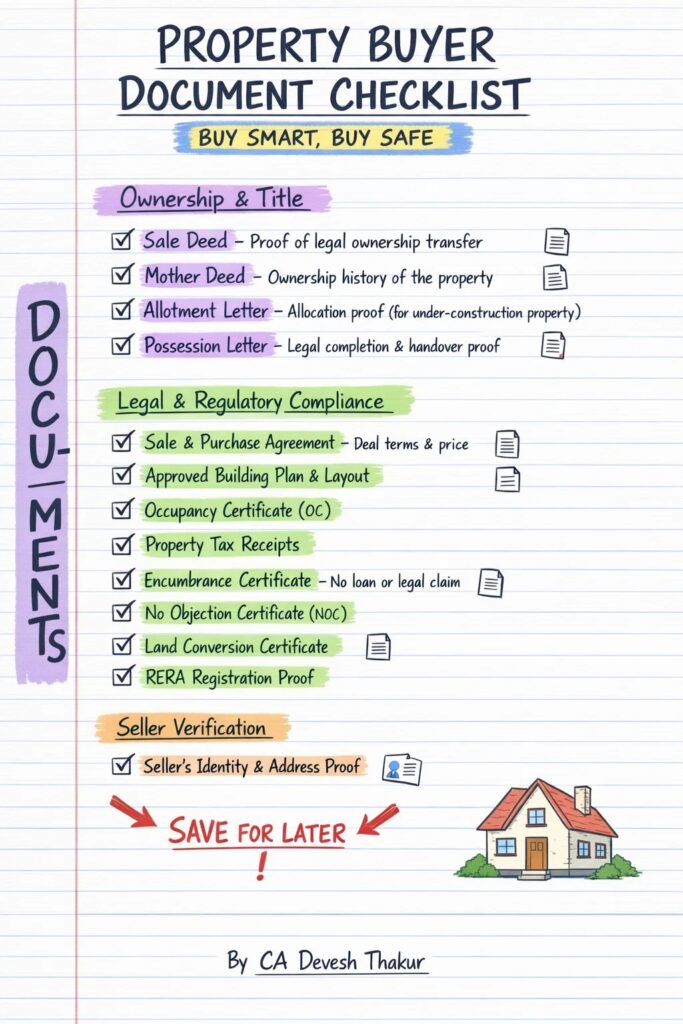 PROPERTY BUYER
DOCUMENT CHECKLIST
BUY SMART, BUY SAFE
DOCU-MENTS
Ownership & Title
Sale Deed – Proof of legal ownership transfer
Mother Deed – Ownership history of the property
Allotment Letter – Allocation proof (for under-construction property)
Possession Letter – Legal completion & handover proof
Legal & Regulatory Compliance
Sale & Purchase Agreement – Deal terms & price
Approved Building Plan & Layout
Occupancy Certificate (OC)
Property Tax Receipts
Encumbrance Certificate – No loan or legal claim
No Objection Certificate (NOC)
Land Conversion Certificate
RERA Registration Proof
Seller Verification
Seller's Identity & Address Proof
SAVE FOR LATER
!
By CA Devesh Thakur